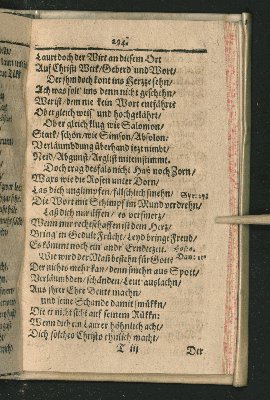 294.
Laurt doch der Wirt an diesem Ort
Auf Christi Werk/ Geberd und Wort/
Der ihm doch kont ins Hertze sehn/
Ach was solt' uns denn nicht geschehn/
Wer ist/ dem nie kein Wort entfährt?
Ob er gleich weis' und hochgelährt/
Ob er gleich klug wie Salomon/
Stark/ schön/ wie Simson/ Absolon:
Verläumbdung überhand jetz nimbt/
Neid/ Abgunst/ Arglist mit einstimmt.
Doch trag deshals nicht Haß noch Zorn/
Wars wie die Rosen unter Dorn/
Las dich unglimpfen/ fälschlich
Die Wort mit Schimpf im Mund verdrehn/
Laß dich narüffen/ es
Wenn nur rechtschaffen ist dein Hertz/
Bring in Gedult Frucht/ Leyd bringe Freud/
Es kömmt noch ein' andr' Erndtezeit.
Wie wird der Mañ bestehn für Gott
Der nichts mehr kan/ denn
Verläumbden/ schänden/ Leut' auslachn/
Aus ihrer Ehre Beute machn/
und seine Schande damit
Die er nicht sieht auf seinem Rükkn:
Wenn dich ein Laurer höhnlich acht/
Dich solches Christo ehrlich macht/
T iij
Der